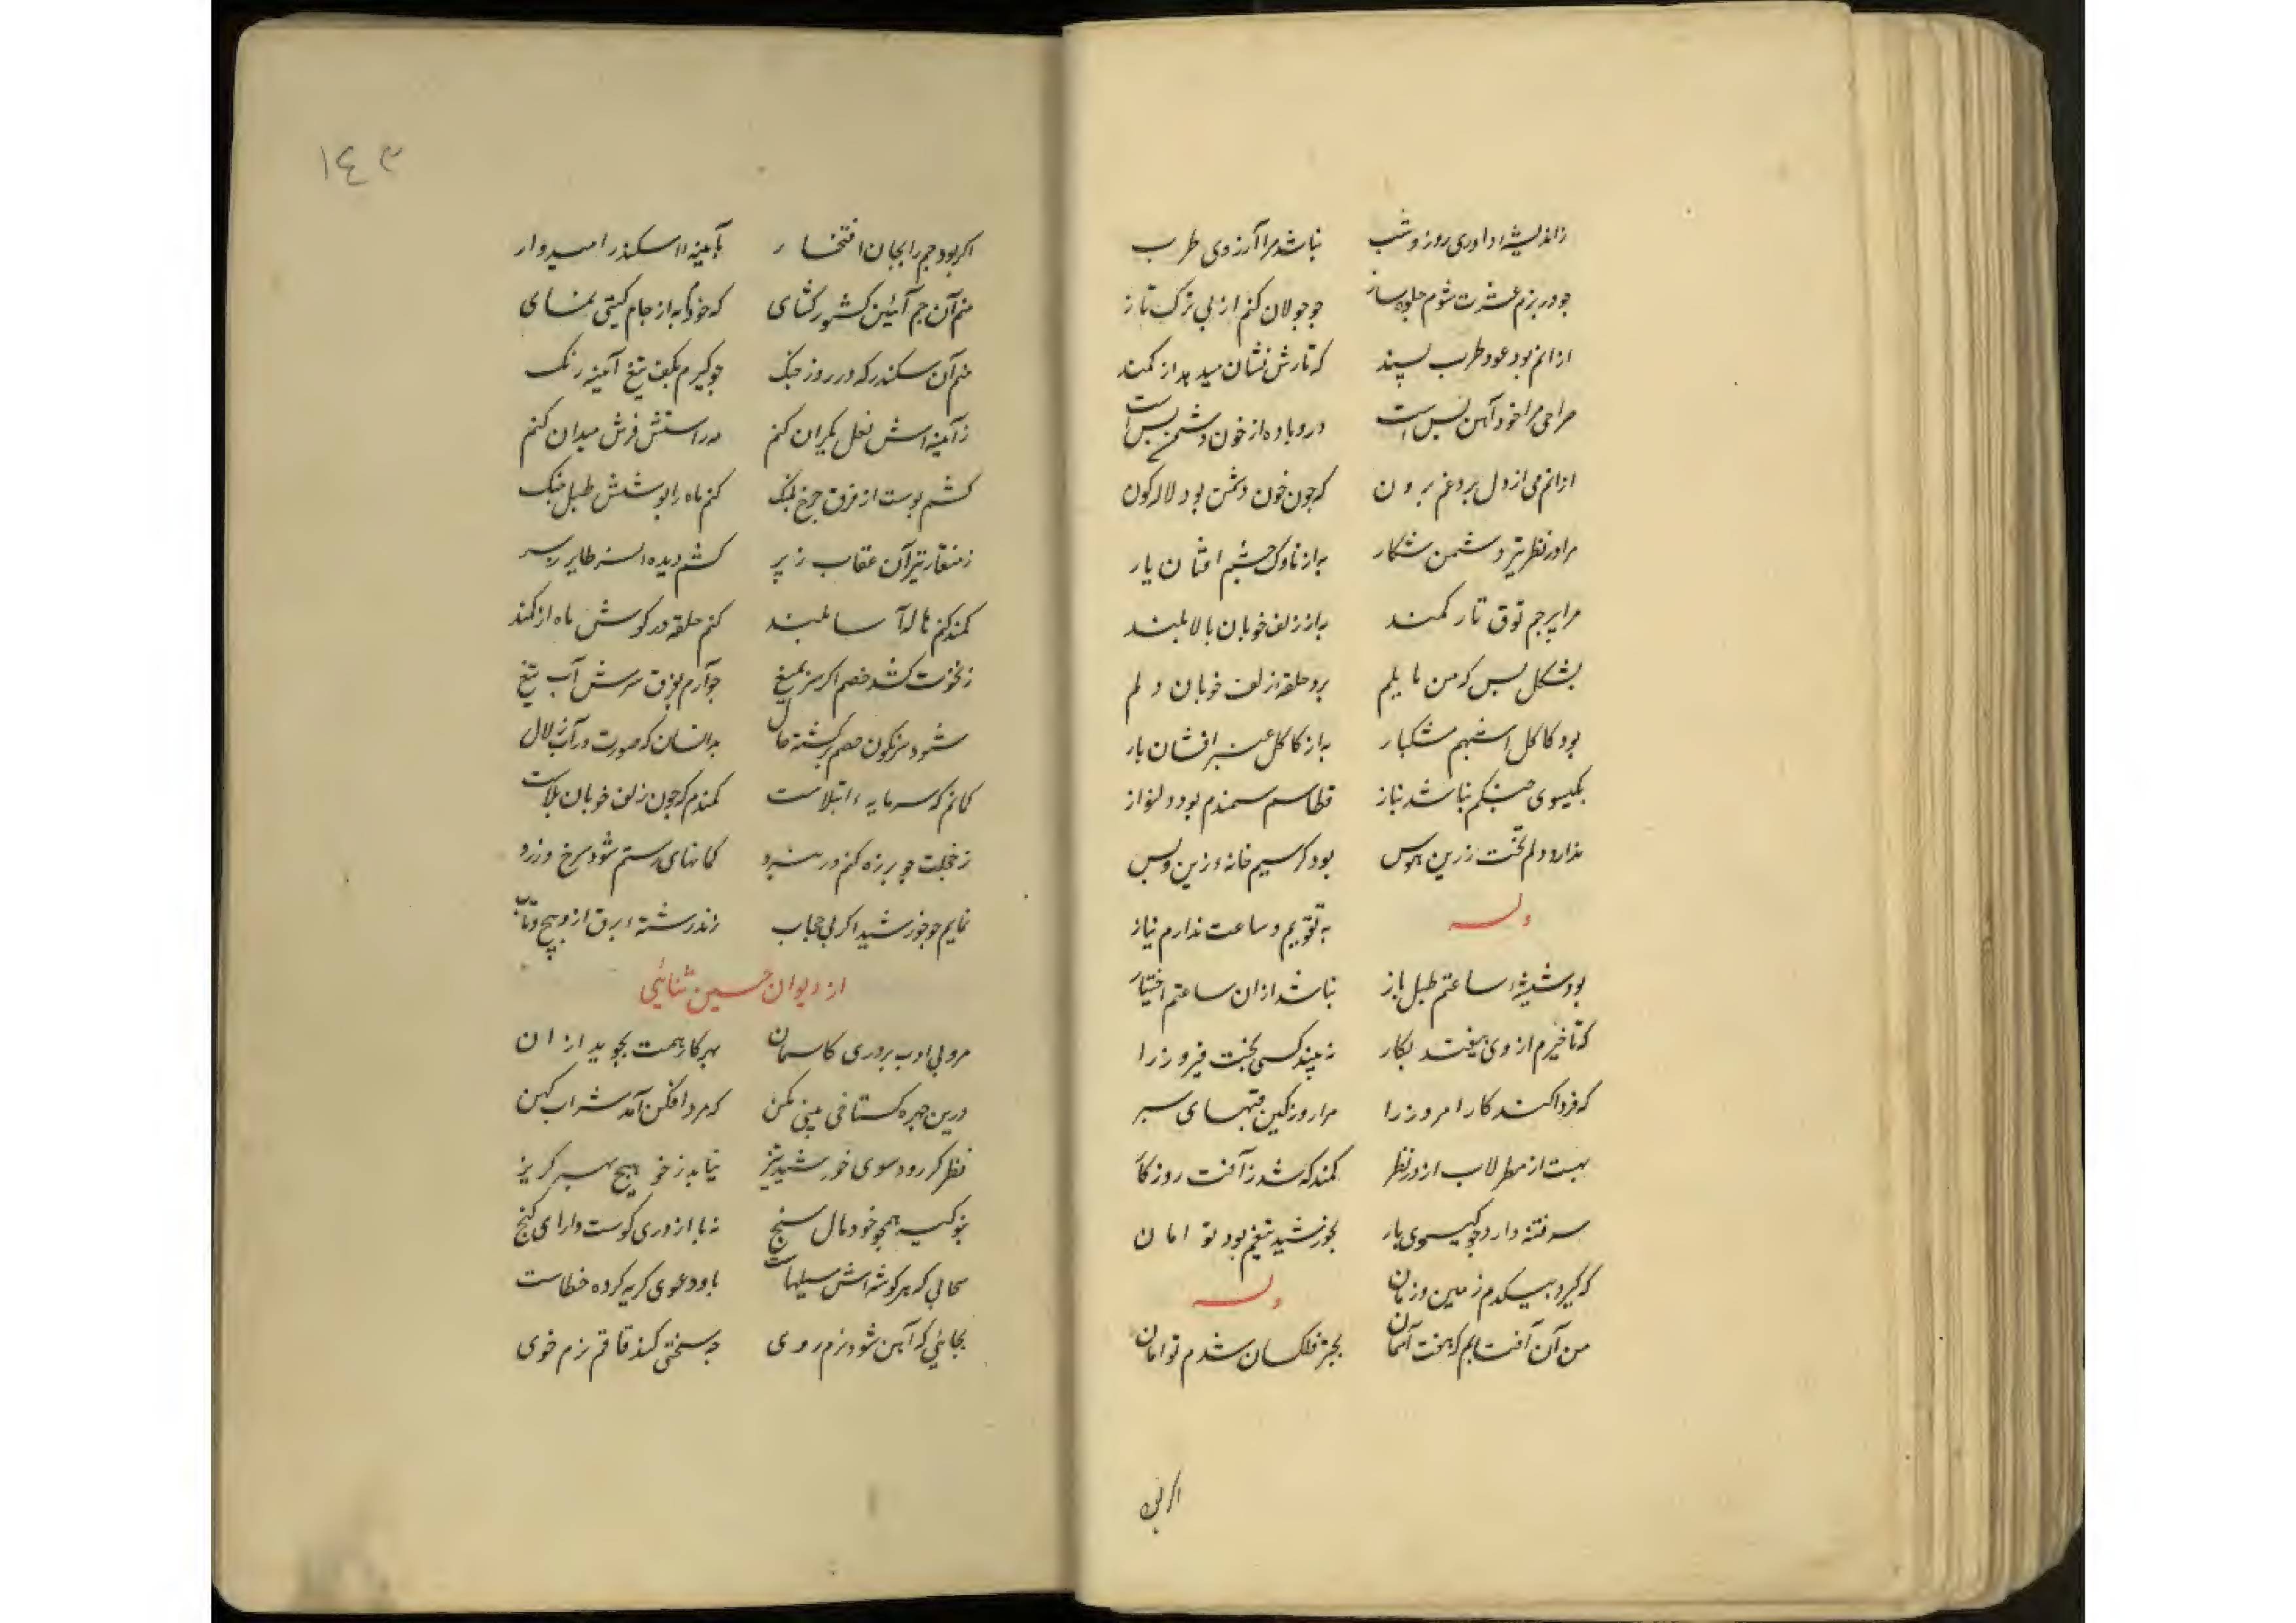 زاندیشه داوری روز و شب نباشد مرا آرزوی طرب
چو در بزم عشرت شوم جلوه ساز چو جولان کنم از پی ترک تاز
ازانم بود عود طرب پسند که تارش نشان میدهد از کمند
صراحی مرا خود آهن بس است درو باده از خون دشمن بس است
ازانم می از دل برد غم برون که چون خون دشمن بود لاله کون
مرا در نظر تیر دشمن شکار به از ناوک چشم افتان یار
مرا پرچم توق تار کمند به از زلف خوبان بالا بلند
بشکل بس که من مایلم برد حلقه زلف خوبان دلم
بود کاکل اشهبم مشکبار به از کاکل عنبر افشان یار
بکیسوی چنکم نباشد نیاز قطاس سمندم بود دلنواز
ندارد دلم تخت زرین هوس بود کرسیم خانه زین و بس
وله به تقویم و ساعت ندارم نیاز
بود شیشه ساعتم طبل باز نباشد ازان ساعتم اختیار
که تاخیرم از وی بیفتد بکار نه بیند کسی بخت فیروز را
که فردا کند کار امروز را مرا روز کین قبهای سپر
بهست از سطرلاب از در نظر کمندکه شد ز آفت روزکار
سر فتنه دارد چو کیسوی یار بخورشید تیغم بود تو امان
که کیرد بیکدم زمین و زمان وله
من آن آفتابم که بخت آسمان بچتر فلکسان شدم تو امان
اکر بود
١٤٣
اکر بود جم را بجان افتخار بآیینه اسکندر امیدوار
منم آن جم آئین کشور کشای که خودم به از جام کیتی نمای
منم آن سکندر که در روز جنک چو کیرم بکف تیغ آیینه رنک
ز آیینه اش نعل یکران کنم سر استش فرش میدان کنم
کشم پوست از فرق چرخ پلنک کنم ماه را پوشش طبل جنک
ز منقار تیر آن عقاب ز پر کشم دیده نسر طایر بسر
کمند کنم هاله آسا بلند کنم حلقه در کوش ماه از کمند
ز نخوت کشد خصم اکر سر بمیغ چو آرم بفرق سرش آب تیغ
شود سرنکون خصم برکشته حال بدانسان که صورت در آب زلال
کمانم که سرمایه ابتلاست کمندم که چون زلف خوبان بلاست
ز خجلت چو بر زه کنم در نبرد کمانهای رستم شود سرخ و زرد
نمایم چو خورشید اکر بی حجاب زند رشته برق ازو پیچ و تاب
از دیوان حسین ثنائی
مرو بی ادب بر دری کاسمان بهر کار همت بجوید ازان
درین جهره کستاخی بینی مکن که مرد افکن آمد شراب کهن
نظر کر رود سوی خورشید تیز نیابد ز خو هیچ بهر کریز
بنو کیسه همچو خود مال سنج نه با از دری کوست دارای کنج
سحابی که هر کوشه اش سیلهاست باو دعوی کریه کردن خطاست
بجائی که آهن شود نرم روی چه سختی کند قاقم نرم خوی